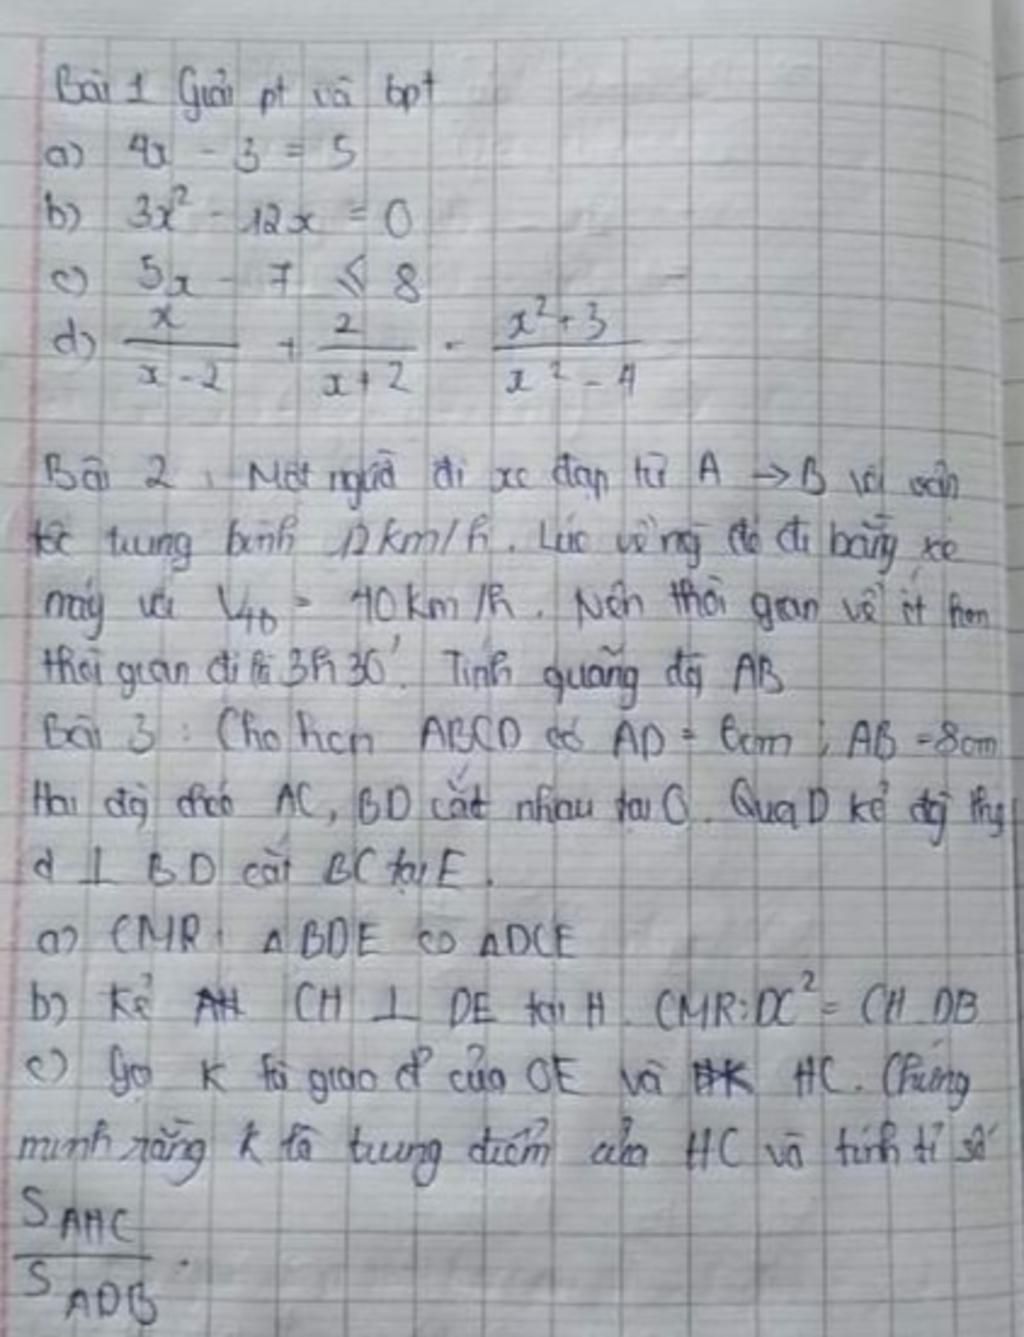 Bài 1 Giải pt và bpt
a) 4x - 3 = 5
b) 3x² - 12x = 0
c) 5x - 7 ≤ 8
d) x/(x - 2) + 2/(x + 2) = (x² + 3)/(x² - 4)
Bài 2 . Một ngườ đi xe đạp từ A → B với vận
tốc trung bình 12km/h. Lúc về ng đó đi bằng xe
máy với Vtb = 40km/h. Nên thời gian về ít hơn
thời gian đi là 3h30'. Tính quãng đg AB
Bài 3 : Cho hcn ABCD có AD = 6cm ; AB = 8cm
Hai đg chéo AC, BD cắt nhau tại O. Qua D kẻ đg thg
d ⊥ BD cắt BC tại E.
a) CMR: ΔBDE ∽ ΔDCE
b) Kẻ CH ⊥ DE tại H. CMR: DC² = CH.DB
c) Gọi K là giao đ' của OE và HC. Chứng
minh rằng K là trung điểm của HC và tính tỉ số
S AHC
S ADB